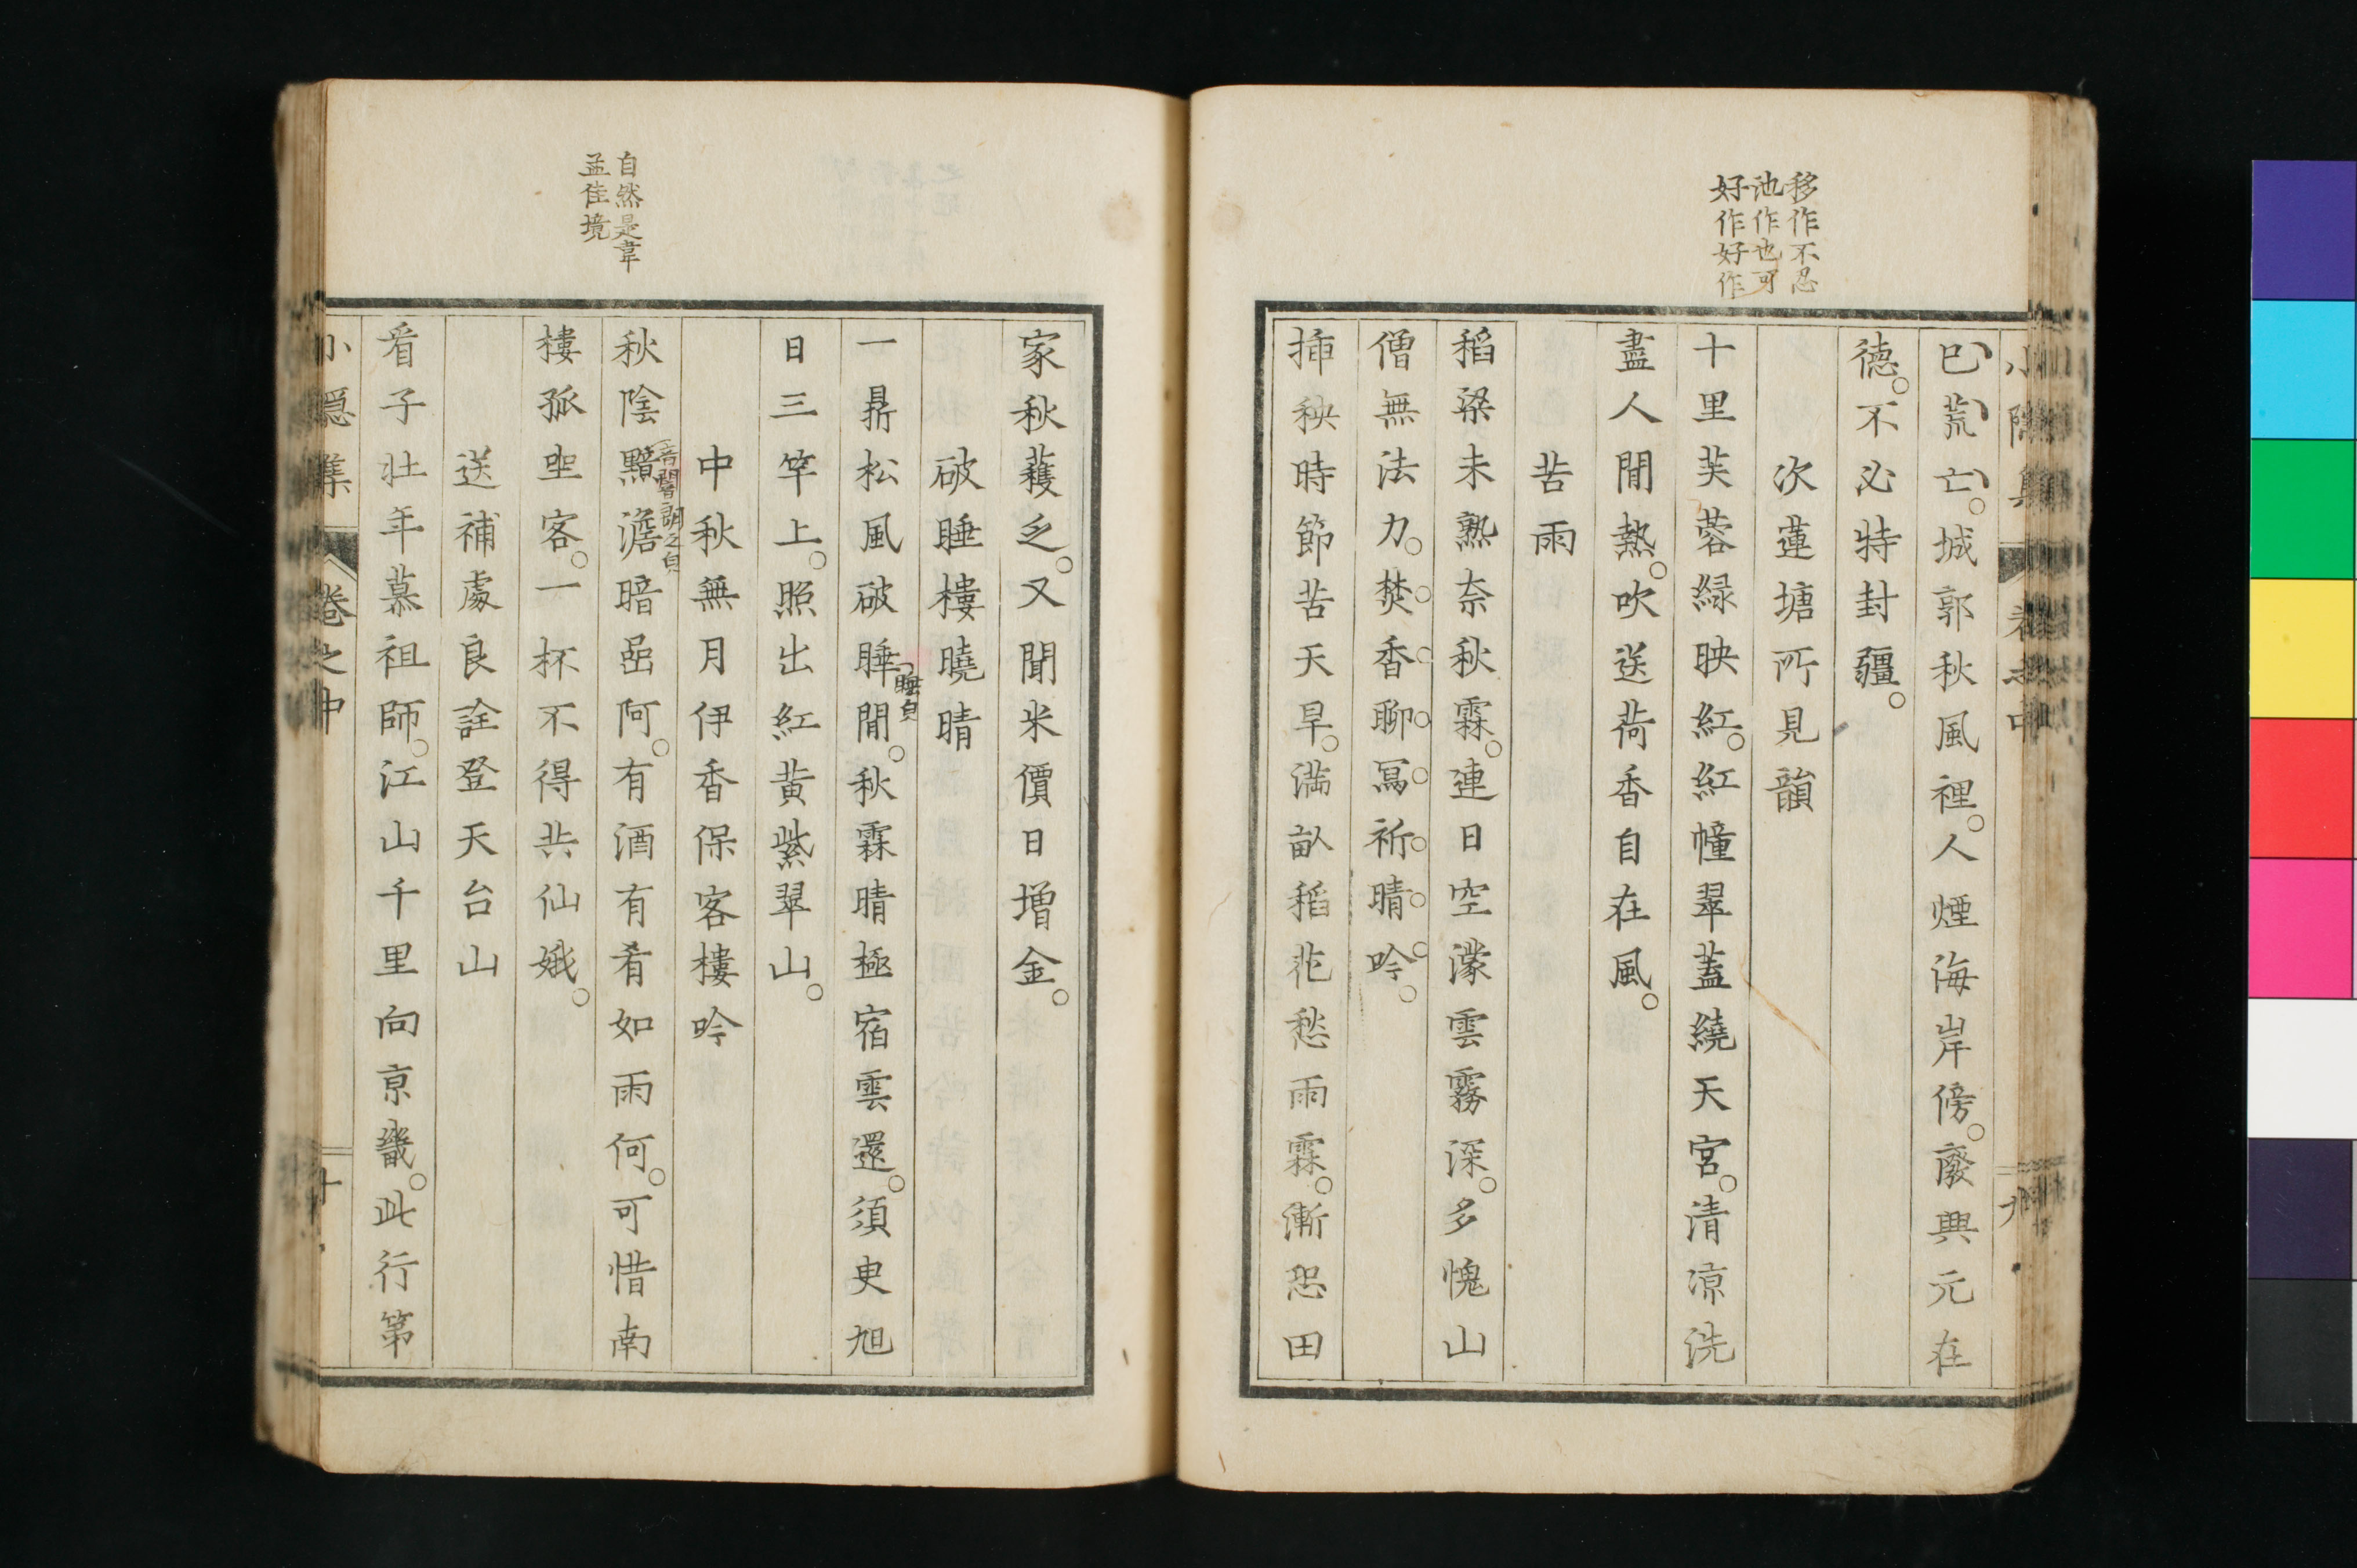 移作不忍
池作也可
好作好作
小隱集
卷之中
九
巳荒亡。城郭秋風裡。人煙海岸傍。廢興元在
德。不必特封疆。
次蓮塘所見韻
十里芙蓉緑映紅。紅幢翠蓋繞天宮。清凉洗
盡人間熱。吹送荷香自在風。
苦雨
稻粱未熟奈秋霖。連日空濛雲霧深。多愧山
僧無法力。焚香聊冩祈晴吟。
挿秧時節苦天旱。満畝稻花愁雨霖。漸恐田
家秋蘀乏。又聞米價日増金。
破睡樓曉晴
一鼎松風破睡閒。秋霖晴極宿雲還。須臾旭
日三竿上。照出紅黄紫翠山。
中秋無月伊香保客樓吟
秋陰黯澹暗嵒阿。有酒有肴如雨何。可惜南
樓孤坐客。一杯不得共仙娥。
送補處良詮登天台山
看子壮年慕祖師。江山千里向京畿。此行第
自然是韋
孟佳境
小隱集
卷之中
十